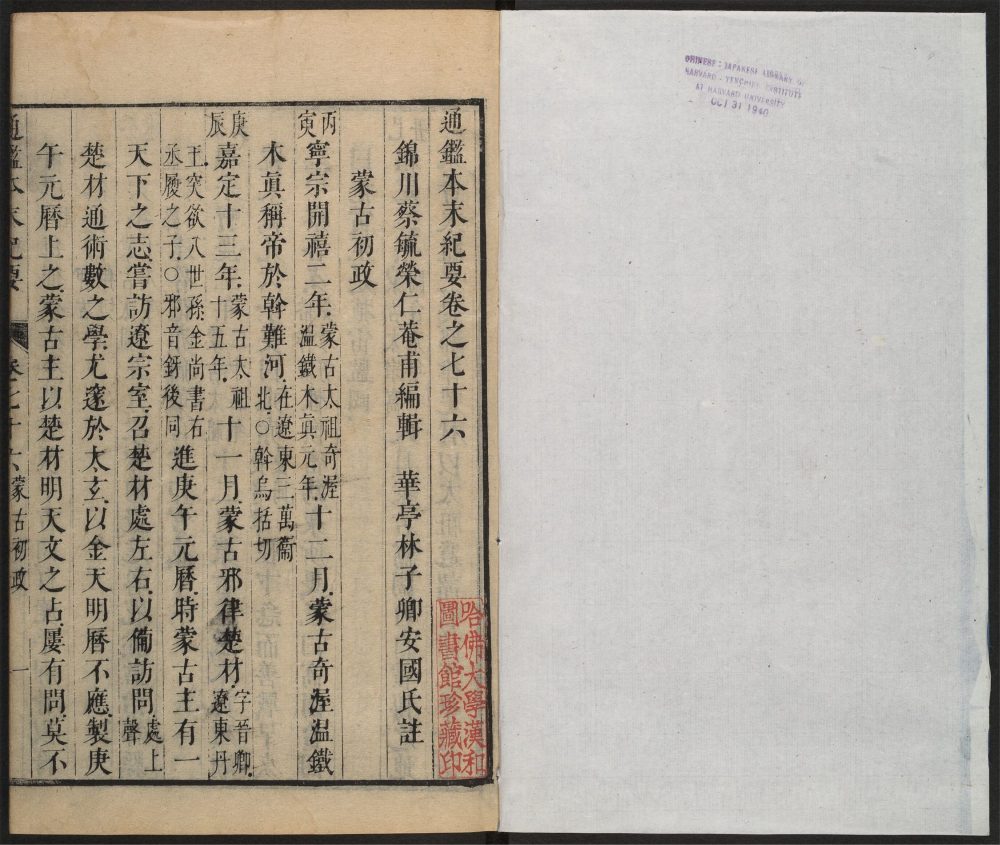 CHINESE-JAPANESE LIBRARY OF
HARVARD-YENCHING INSTITUTE
AT HARVARD UNIVERSITY
OCT 31 1940
通鑑本末紀要卷之七十六
錦川蔡毓榮仁菴甫編輯 華亭林子卿安國氏註
哈佛大學漢和
圖書館珍藏印
蒙古初政
丙寅寧宗開禧二年蒙古太祖奇渥溫鐵木真元年十二月蒙古奇渥溫鐵
木真稱帝於斡難河在遼東三萬衞北○斡烏括切
庚辰嘉定十三年蒙古太祖十五年十一月蒙古耶律楚材字晉卿遼東丹
王突欲八世孫金尚書右丞履之子○邪音釾後同進庚午元曆時蒙古主有一
天下之志嘗訪遼宗室召楚材處左右以備訪問處上聲
楚材通術數之學尤邃於太玄以金天明曆不應製庚
午元曆上之蒙古主以楚材明天文之占屢有問莫不
通鑑本末紀要 卷七十六 蒙古初政 一